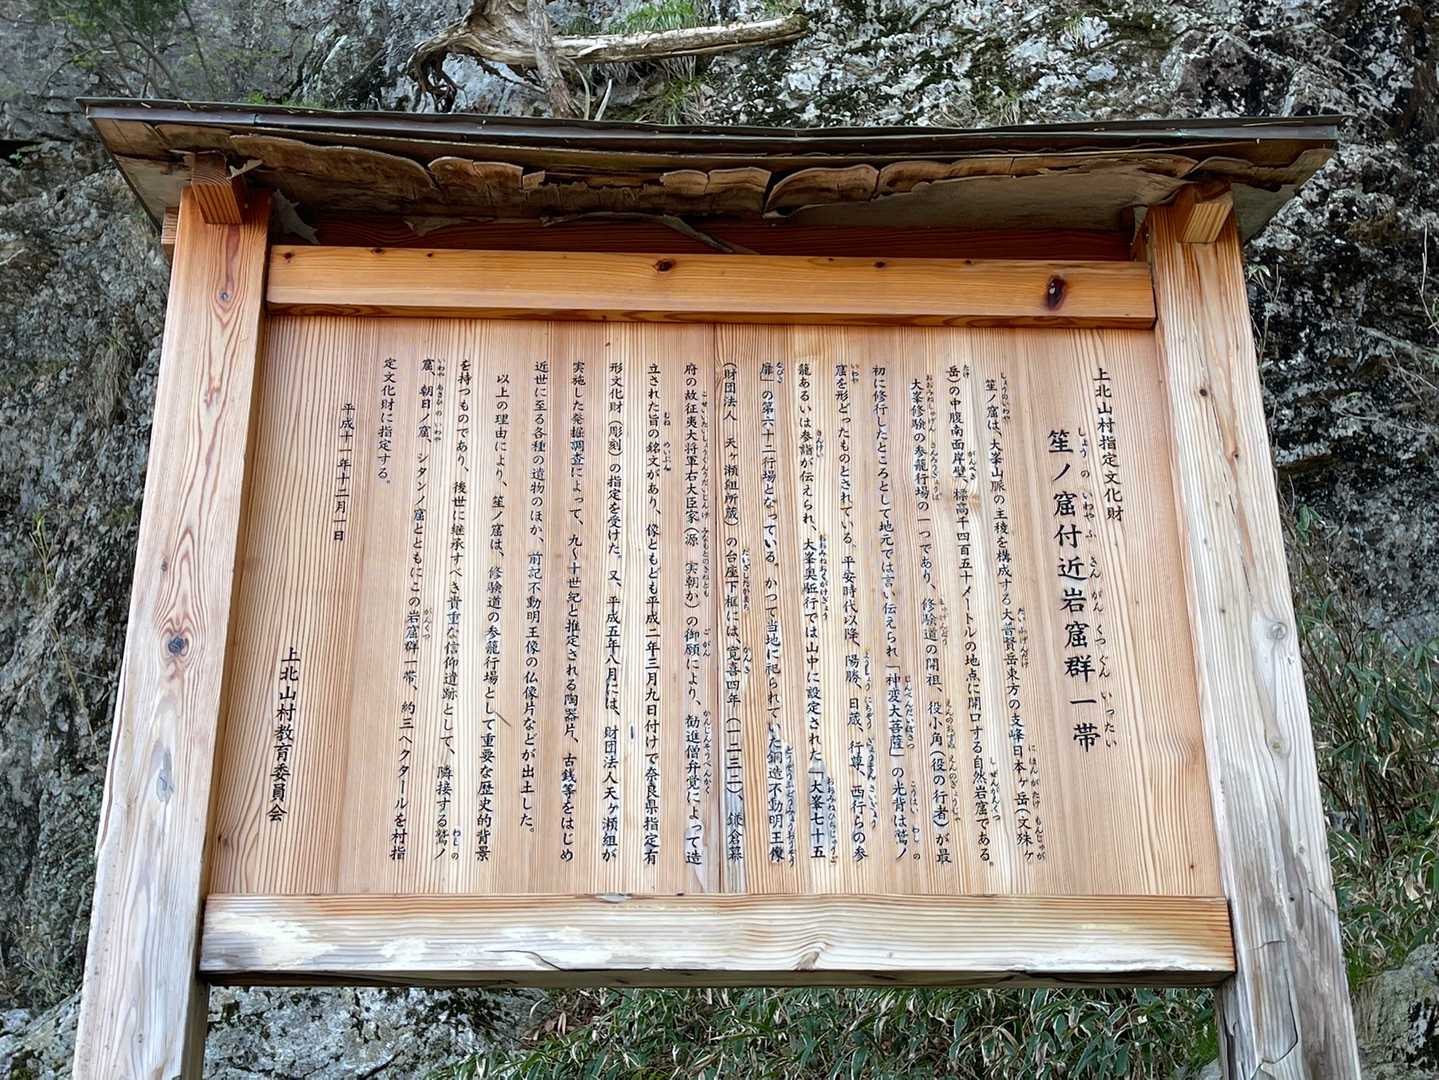 上北山村指定文化財
笙ノ窟付近岩窟群一帯
笙ノ窟は、大峯山脈の主稜を構成する大普賢岳東方の支峰日本ヶ岳(文殊ヶ
岳)の中腹南面岸壁、標高千四百五十メートルの地点に開口する自然岩窟である。
大峯修験の参籠行場の一つであり、修験道の開祖、役小角(役の行者)が最
初に修行したところとして地元では言い伝えられ「神変大菩薩」の光背は鷲ノ
窟を形どったものとされている。平安時代以降、陽勝、日蔵、行尊、西行らの参
籠あるいは参詣が伝えられ、大峯奥駈行では山中に設定された「大峯七十五
靡」の第六十二行場となっている。かつて当地に祀られていた銅造不動明王像
(財団法人 天ヶ瀬組所蔵)の台座下框には、寛喜四年(一二三二)、鎌倉幕
府の故征夷大将軍右大臣家(源 実朝か)の御願により、勧進僧弁覚によって造
立された旨の銘文があり、像ともども平成二年三月九日付けで奈良県指定有
形文化財(彫刻)の指定を受けた。又、平成五年八月には、財団法人天ヶ瀬組が
実施した発掘調査によって、九〜十世紀と推定される陶器片、古銭等をはじめ
近世に至る各種の遺物のほか、前記不動明王像の仏像片などが出土した。
以上の理由により、笙ノ窟は、修験道の参籠行場として重要な歴史的背景
を持つものであり、後世に継承すべき貴重な信仰遺跡として、隣接する鷲ノ
窟、朝日ノ窟、シタンノ窟とともにこの岩窟群一帯、約三ヘクタールを村指
定文化財に指定する。
平成十一年十二月一日
上北山村教育委員会